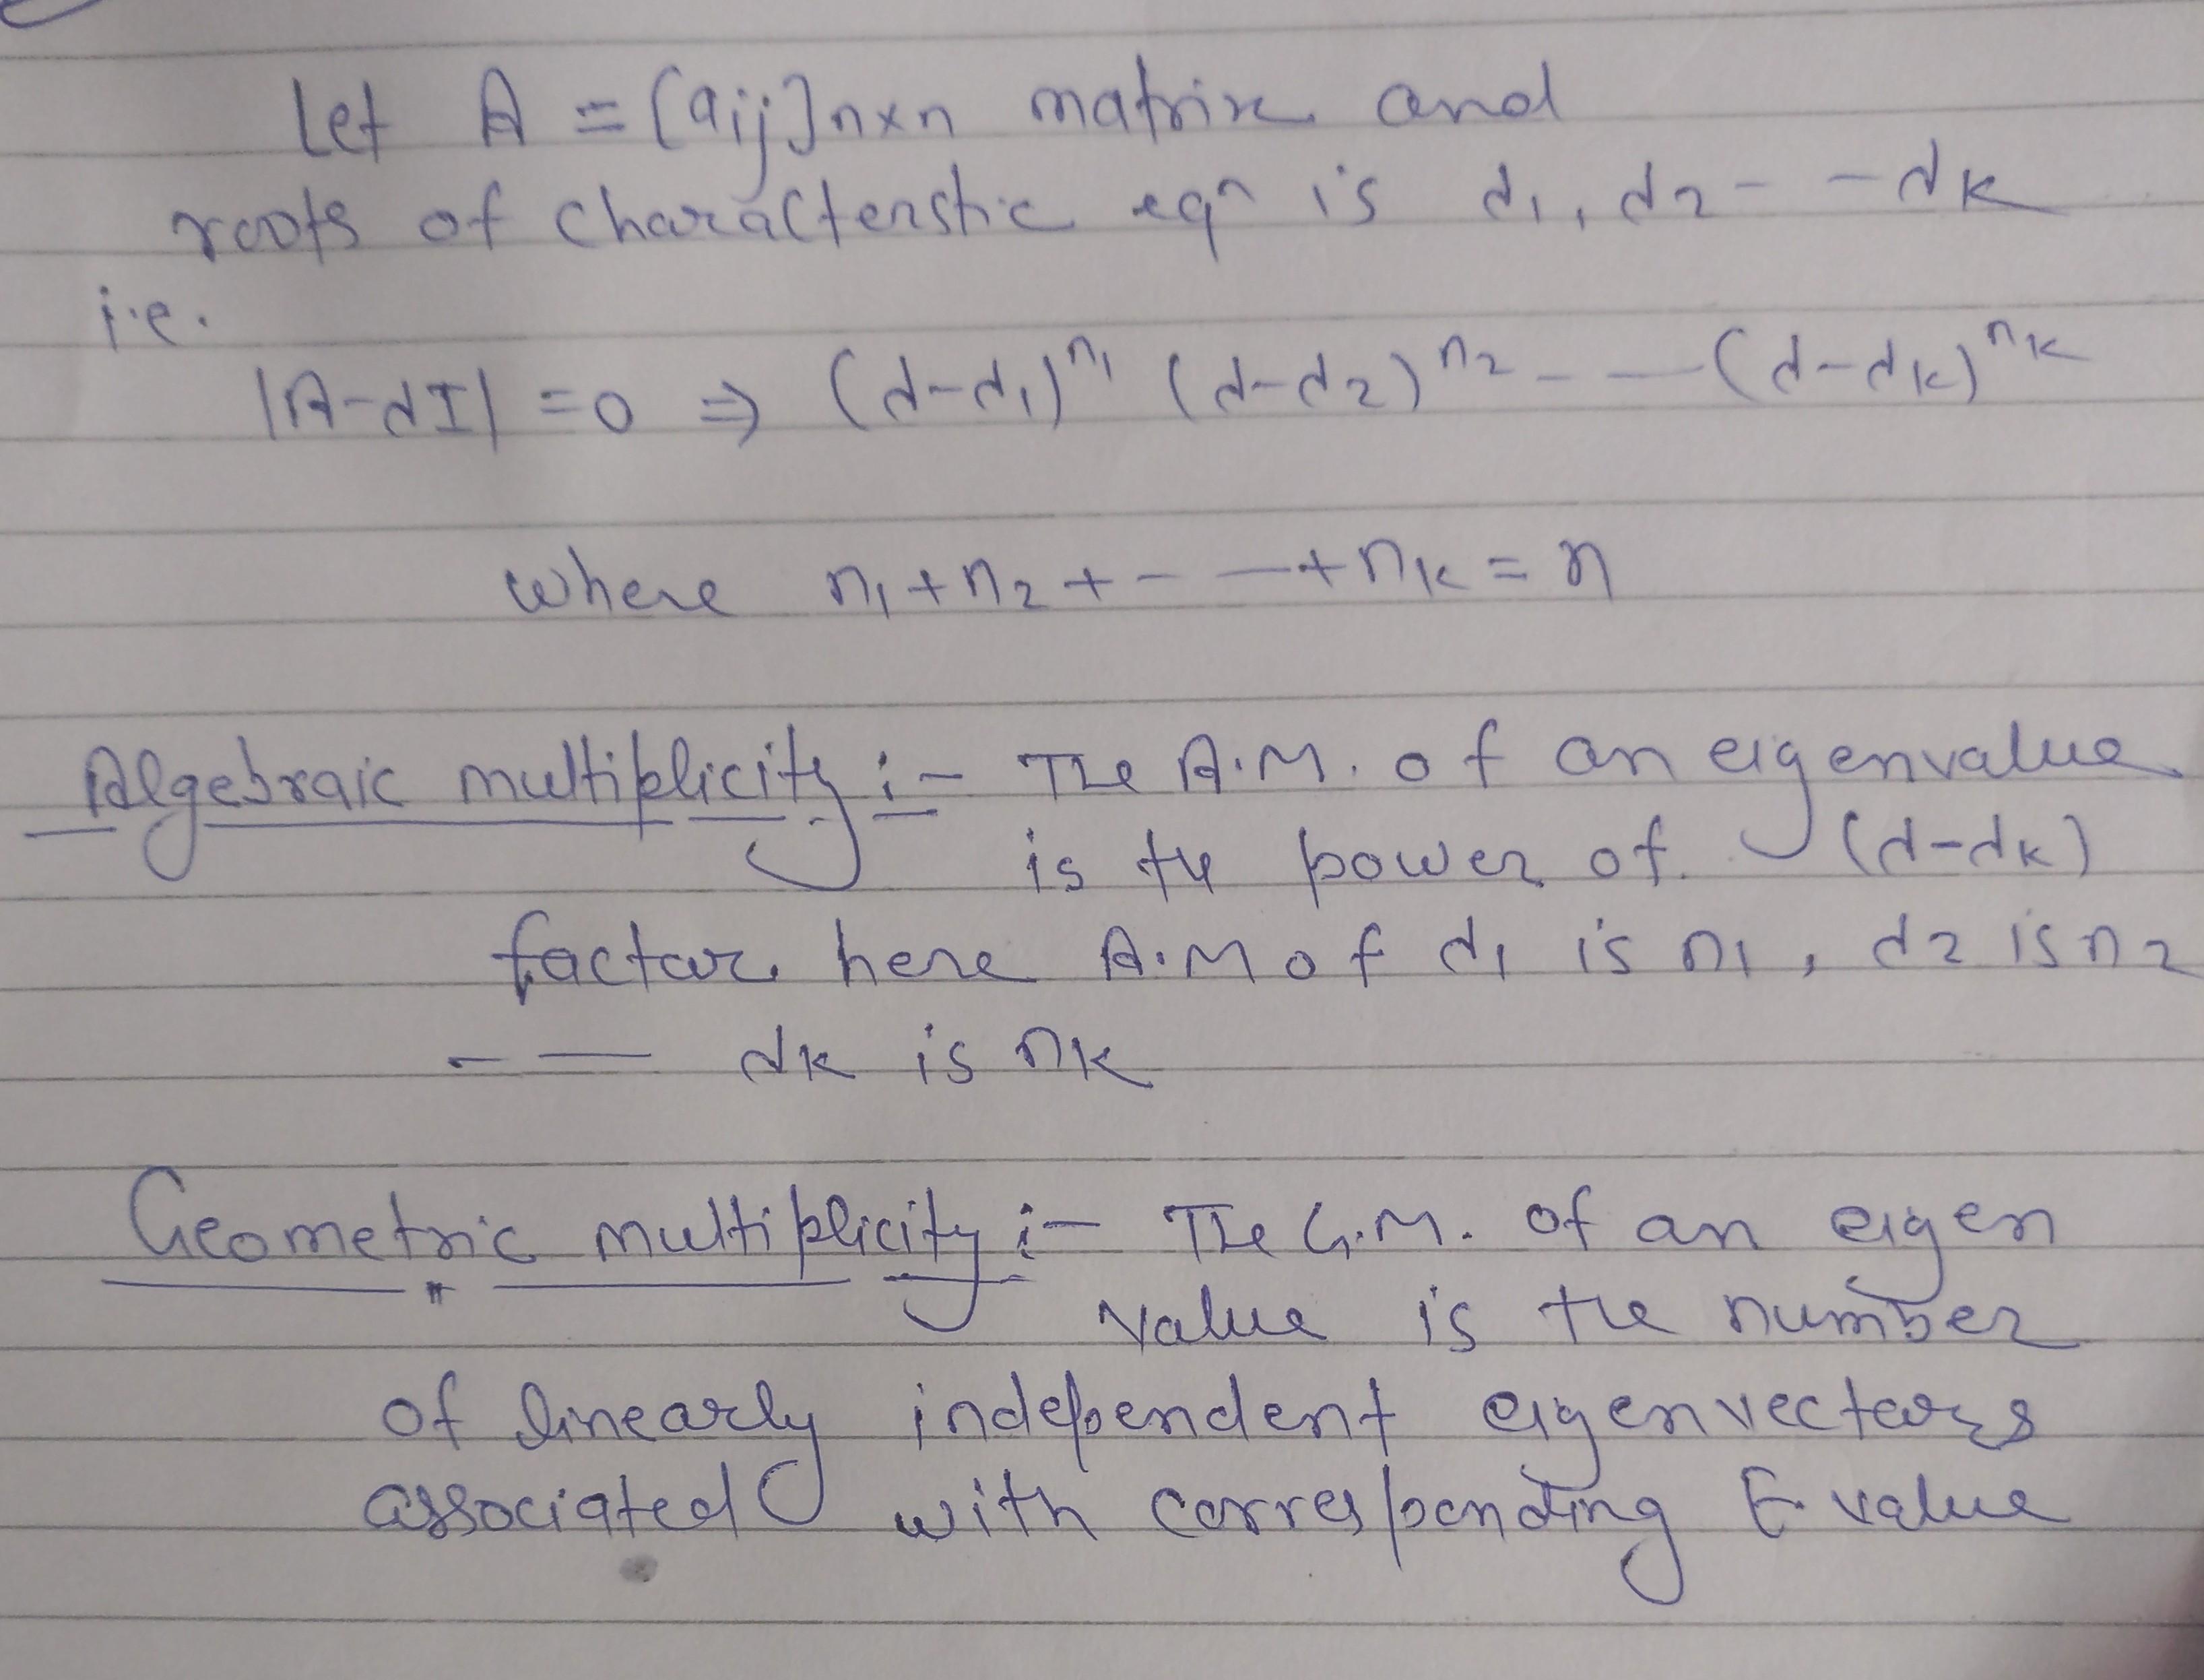 Let A = [aij]n×n matrix and
roots of characterstic eqn is d1, d2 - - dk
i.e.
|A-dI| = 0 ⇒ (d-d1)^n1 (d-d2)^n2 - — (d-dk)^nk
where n1 + n2 + - — + nk = n
Algebraic multiplicity :- The A.M. of an eigenvalue
is the power of (d-dk)
factor here A.M of d1 is n1, d2 is n2
- — dk is nk
Geometric multiplicity :- The G.M. of an eigen
value is the number
of linearly independent eigenvectors
associated with corresponding E. value